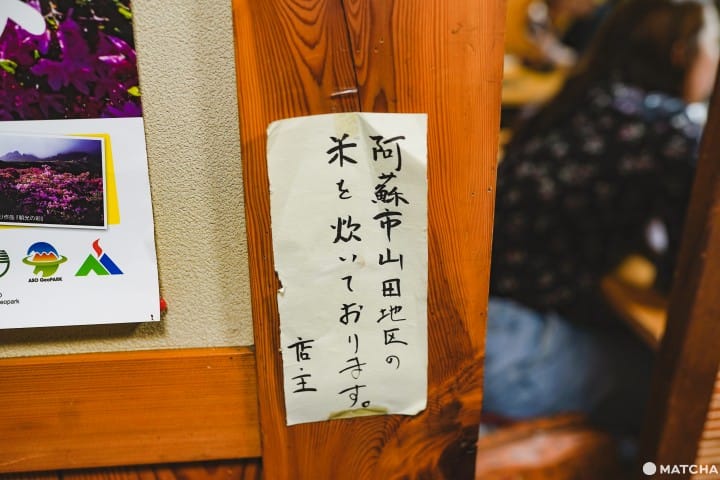 阿蘇市山田地区の
米を炊いております。
店主
ASO GEOPARK
MATCHA